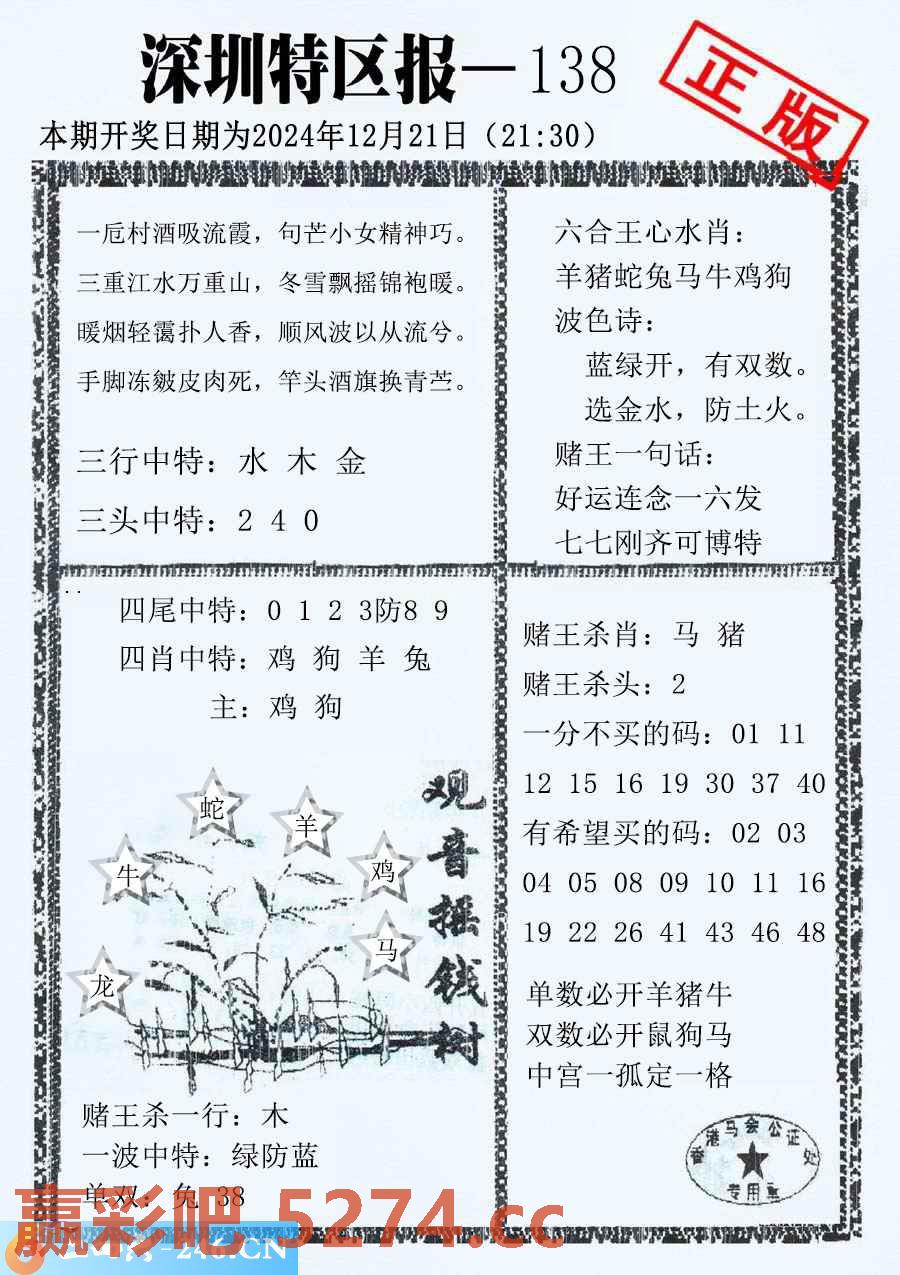 深圳特区报—138
正版
本期开奖日期为2024年12月21日（21:30）
一卮村酒吸流霞，句芒小女精神巧。
三重江水万重山，冬雪飘摇锦袍暖。
暖烟轻霭扑人香，顺风波以从流兮。
手脚冻皴皮肉死，竿头酒旗换青苎。
三行中特：水 木 金
三头中特：2 4 0
六合王心水肖：
羊猪蛇兔马牛鸡狗
波色诗：
蓝绿开，有双数。
选金水，防土火。
赌王一句话：
好运连念一六发
七七刚齐可博特
四尾中特：0 1 2 3防8 9
四肖中特：鸡 狗 羊 兔
主：鸡 狗
蛇
羊
牛
鸡
马
龙
观音摇钱树
赌王杀一行：木
一波中特：绿防蓝
单双：兔 38
赌王杀肖：马 猪
赌王杀头：2
一分不买的码：01 11
12 15 16 19 30 37 40
有希望买的码：02 03
04 05 08 09 10 11 16
19 22 26 41 43 46 48
单数必开羊猪牛
双数必开鼠狗马
中宫一孤定一格
香港马会公证处
专用章
赢彩吧 5274.cc
-246.CN